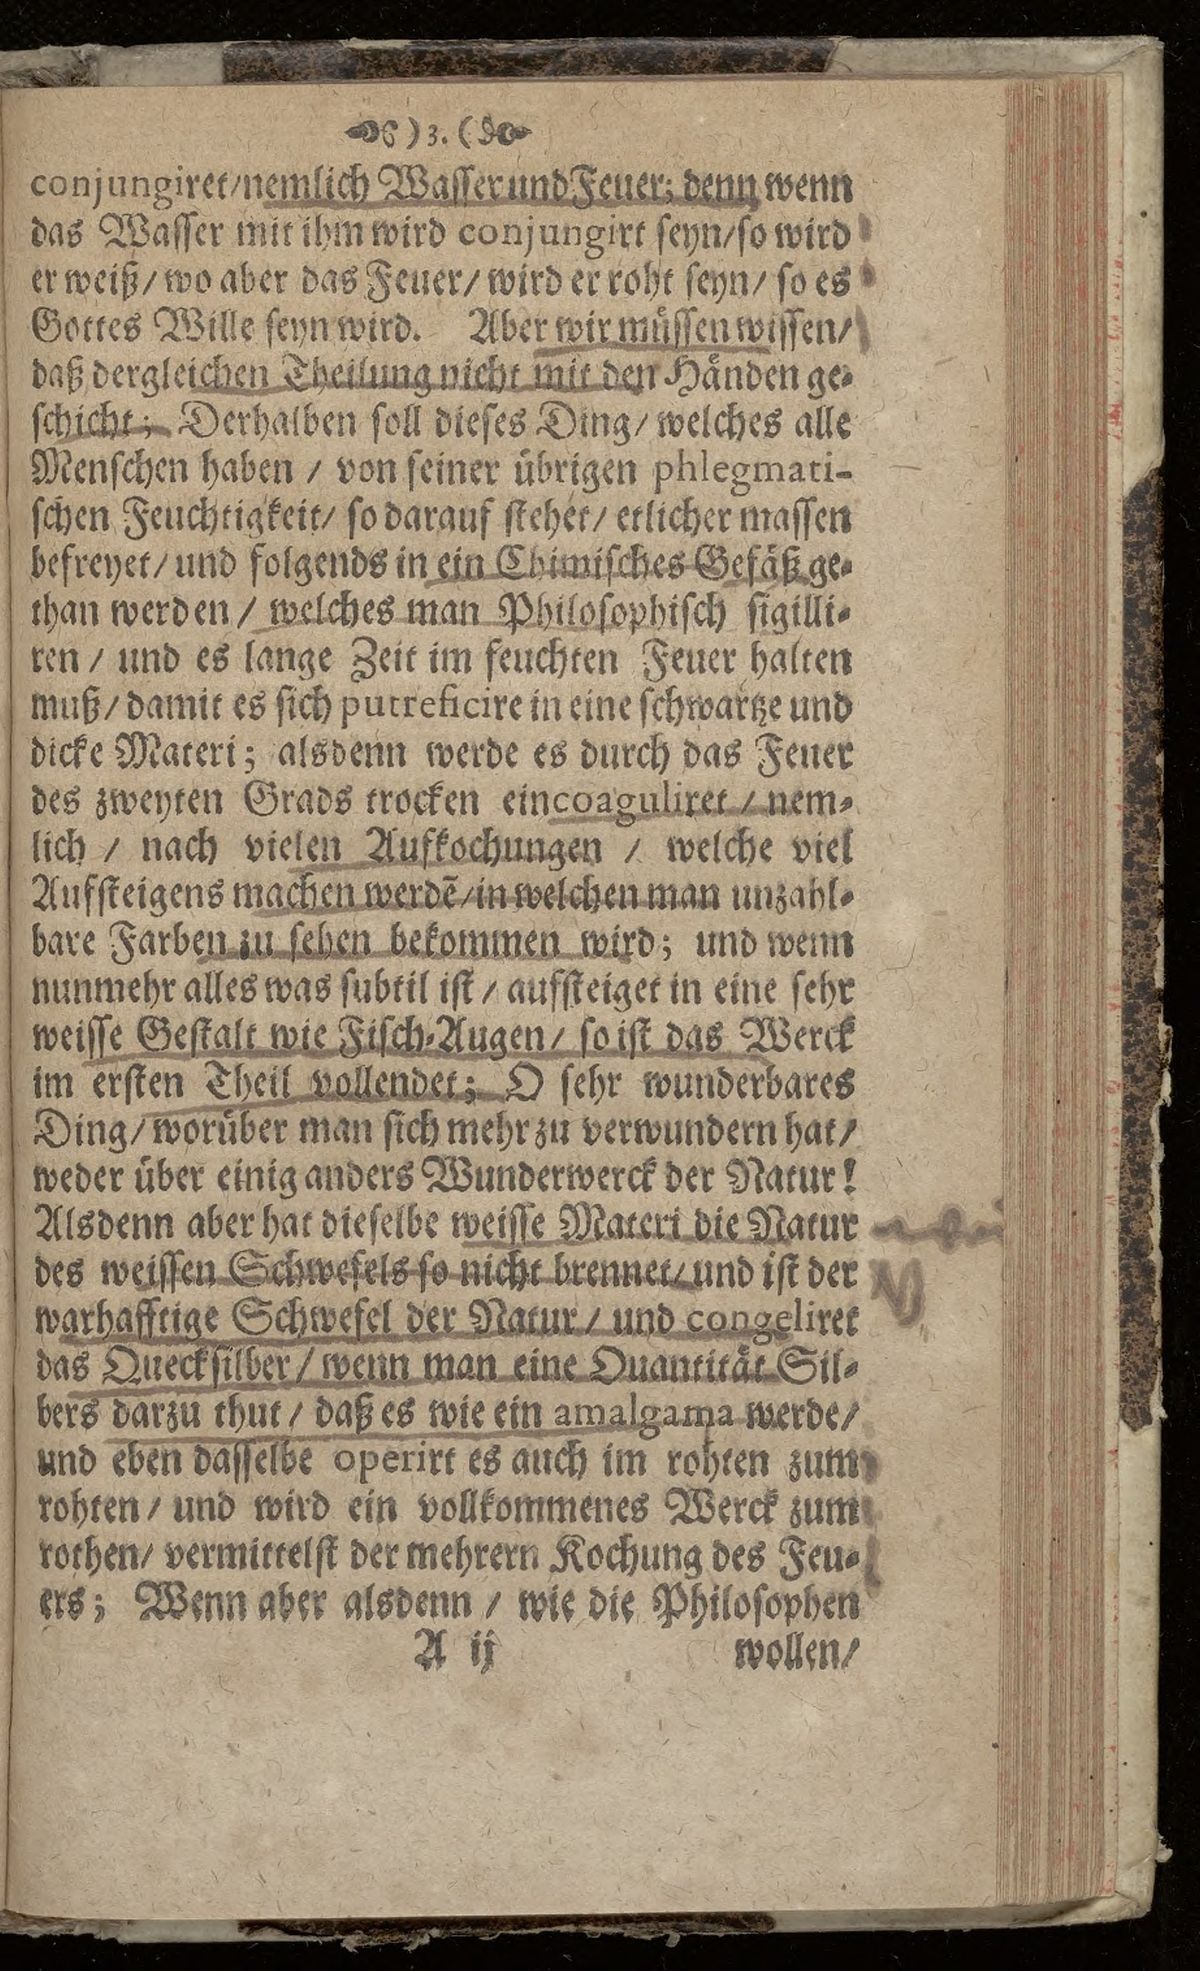 ) 3. (
conjungiret/nemlich Wasser und Feuer; denn wenn
das Wasser mit ihm wird conjungirt seyn/so wird
er weiß/ wo aber das Feuer/ wird er roht seyn/ so es
Gottes Wille seyn wird. Aber wir müssen wissen/
daß dergleichen Theilung nicht mit den Händen ge-
schicht; Derhalben soll dieses Ding/ welches alle
Menschen haben / von seiner übrigen phlegmati-
schen Feuchtigkeit/ so darauf stehet/ etlicher massen
befreyet/ und folgends in ein Chimisches Gefäß ge-
than werden / welches man Philosophisch sigilli-
ren / und es lange Zeit im feuchten Feuer halten
muß/ damit es sich putreficire in eine schwartze und
dicke Materi; alsdenn werde es durch das Feuer
des zweyten Grads trocken eincoaguliret / nem-
lich / nach vielen Aufkochungen / welche viel
Aufsteigens machen werdē/in welchen man unzahl-
bare Farben zu sehen bekommen wird; und wenn
nunmehr alles was subtil ist / aufsteiget in eine sehr
weisse Gestalt wie Fisch-Augen/ so ist das Werck
im ersten Theil vollendet; O sehr wunderbares
Ding/ worüber man sich mehr zu verwundern hat/
weder über einig anders Wunderwerck der Natur!
Alsdenn aber hat dieselbe weisse Materi die Natur
des weissen Schwefels so nicht brennet/ und ist der
warhafftige Schwefel der Natur / und congeliret
das Quecksilber / wenn man eine Quantität Sil-
bers darzu thut / daß es wie ein amalgama werde/
und eben dasselbe operirt es auch im rohten zum
rohten / und wird ein vollkommenes Werck zum
rothen/ vermittelst der mehrern Kochung des Feu-
ers; Wenn aber alsdenn / wie die Philosophen
A ij wollen/